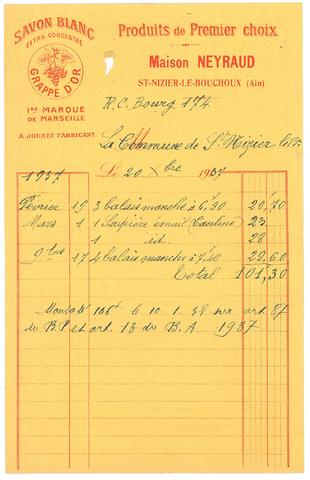 SAVON BLANC
EXTRA CONCENTRÉ
GRAPPE D'OR
1RE MARQUE
DE MARSEILLE
A. JOUNET FABRICANT
Produits de Premier choix
Maison NEYRAUD
ST-NIZIER-LE-BOUCHOUX (Ain)
R.C. Bourg 174
La Commune de St Nizier le Bx
Le 20 Xbre 1937
1937
Février 19 3 balais manche à 6,90 20,70
Mars 1 1 émail (Cantine) 23
1 id. 28
9bre 17 4 balais manche à 7,40 29,60
Total 101,30
Mandaté le 10.1.38 sur art 87
du BP et art. 13 du B.A. 1937